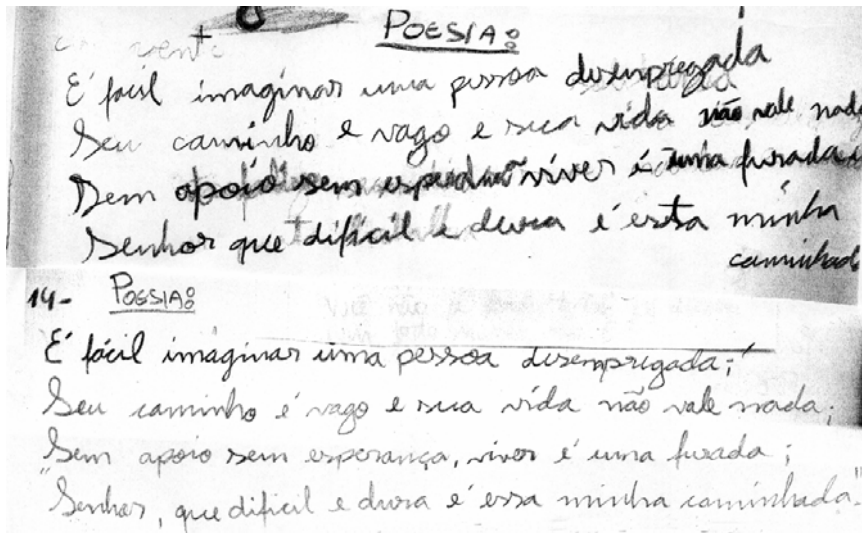 POESIA:
É facil imaginar uma pessoa desempregada
Seu caminho e vago e sua vida não vale nada
Sem apoio sem viver é uma furada
Senhor que dificil e dura é esta minha
caminhada
14- POESIA:
É fácil imaginar uma pessoa desempregada;
Seu caminho é vago e sua vida não vale nada;
Sem apoio sem esperança, viver é uma furada;
"Senhor, que dificil e dura é essa minha caminhada."